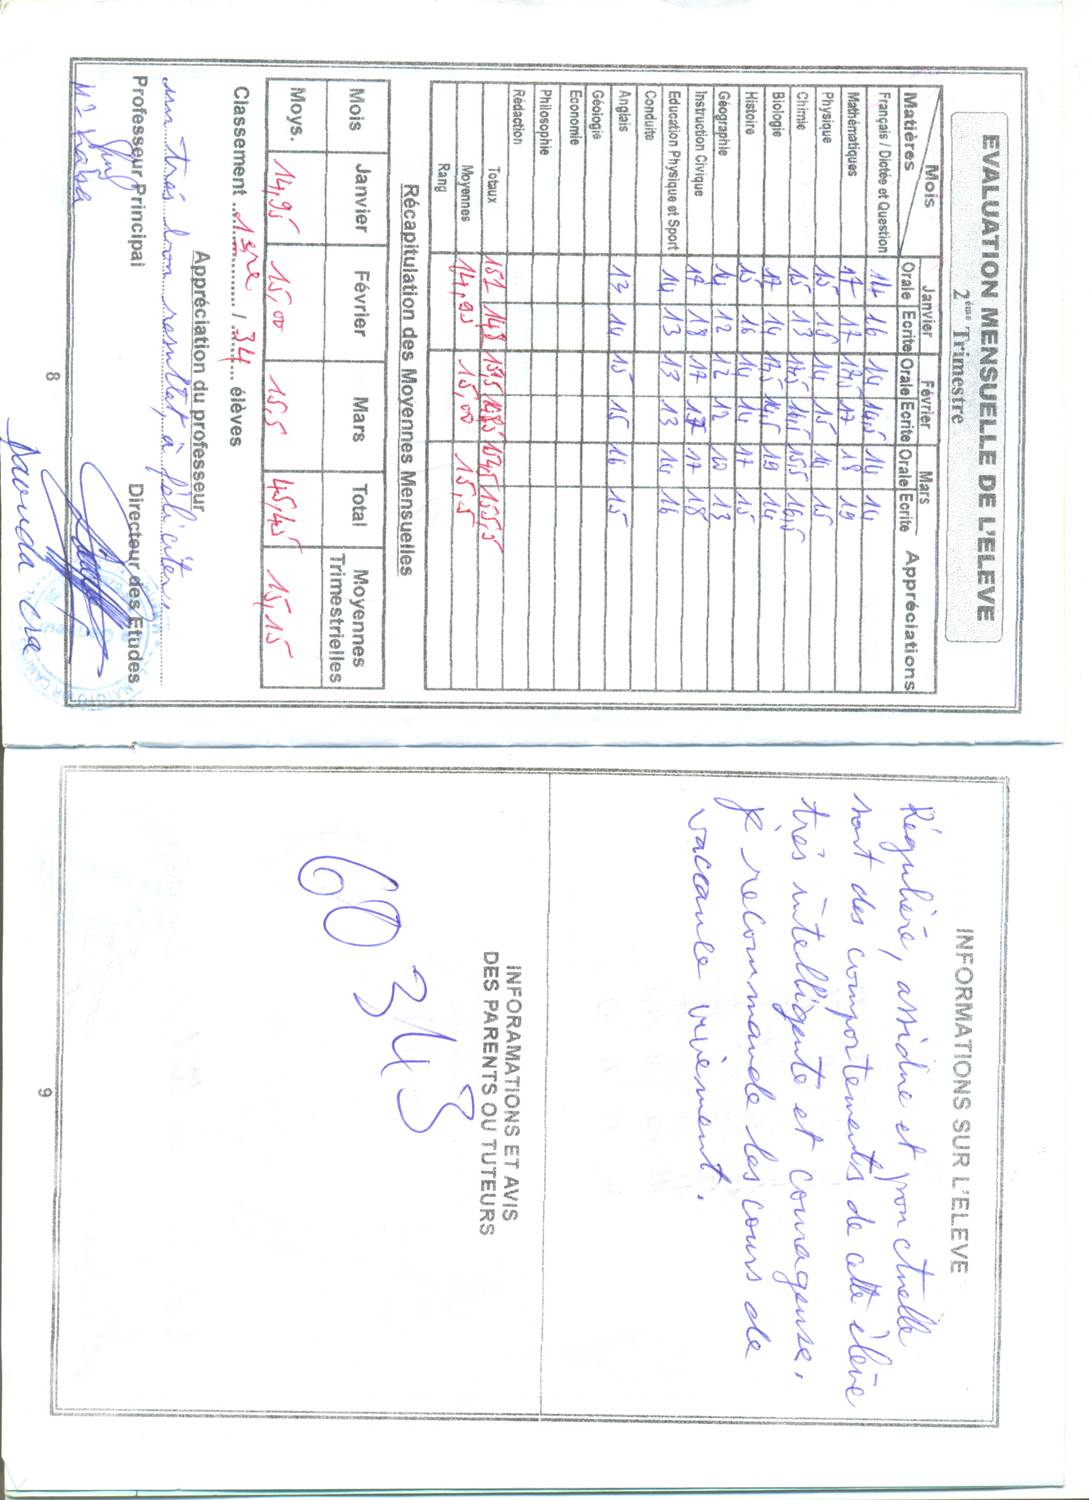 EVALUATION MENSUELLE DE L'ELEVE
2ème Trimestre
Mois Janvier Février Mars Appréciations
Matières Orale Ecrite Orale Ecrite Orale Ecrite
Français / Dictée et Question 14 16 14 14,5 14 14
Mathématiques 17 17 17,5 17 18 19
Physique 15 15 14 15 14 15
Chimie 15 13 17,5 16,5 15,5 16,5
Biologie 17 14 17,5 14,5 19 14
Histoire 15 16 14 14 17 15
Géographie 14 12 12 12 10 13
Instruction Civique 17 18 17 17 17 18
Education Physique et Sport 14 13 13 13 14 16
Conduite
Anglais 13 14 15 15 16 15
Géologie
Economie
Philosophie
Rédaction
Totaux 151 148 151,5 148,5 154,5 155,5
Moyennes 14,95 15,00 15,5
Rang
Récapitulation des Moyennes Mensuelles
Mois Janvier Février Mars Total Moyennes Trimestrielles
Moys. 14,95 15,00 15,5 45,45 15,15
Classement 1ère / 34 élèves
Appréciation du professeur
un très bon resultat, à féliciter
Professeur Principal Directeur des Etudes
Mr Kaba
Daouda
8
INFORMATIONS SUR L'ELEVE
Régulière, assidue et ponctuelle
sont des comportements de cette élève
très intelligente et courageuse.
je recommande les cours de
vaccance vivement.
INFORAMATIONS ET AVIS
DES PARENTS OU TUTEURS
60 343
9